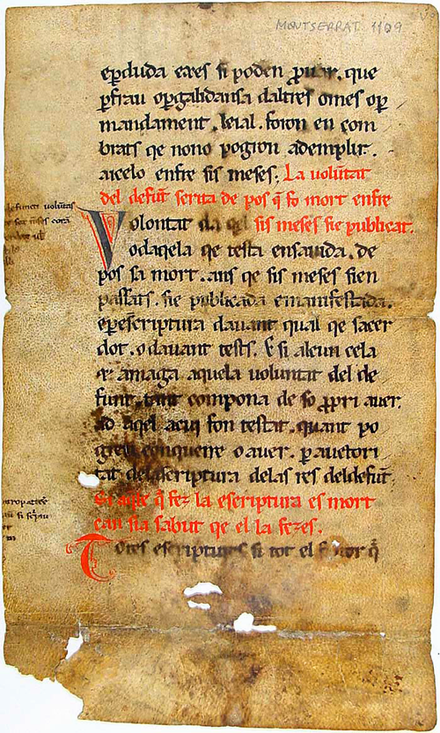 MONTSERRAT 1109
eꝑduda eares si poden ꝓuar. que
ꝑfrau oꝑgabdansa daltres omes oꝑ
mandament. leial. foron en com
brats qe nono pogron ademplir.
aicelo enfre sis meses. La uolūtat
del defūt scrita de pos q̄ fo mort enfre
Volontat da qel sis meses sie publicat.
odaqela qe testa ensauida. de
pos sa mort. ans qe sis meses sien
passats. sie publicada emanifestada.
eꝑescriptura dauant qual qe sacer
dot. odauant tests. E si alcun cela
amaga aquela voluntat del de
funt. tant compona de so ꝓpri auer.
ad aqel acui fon testat. quant po
gren conquerre o auer. ꝑ auctori
tat del escriptura delas res deldefūt.
Si q̄ fez la escriptura es mort
ean sia sabut qe el la fezes.
Totes escriptures si tot el q̄
defuncti volūtas